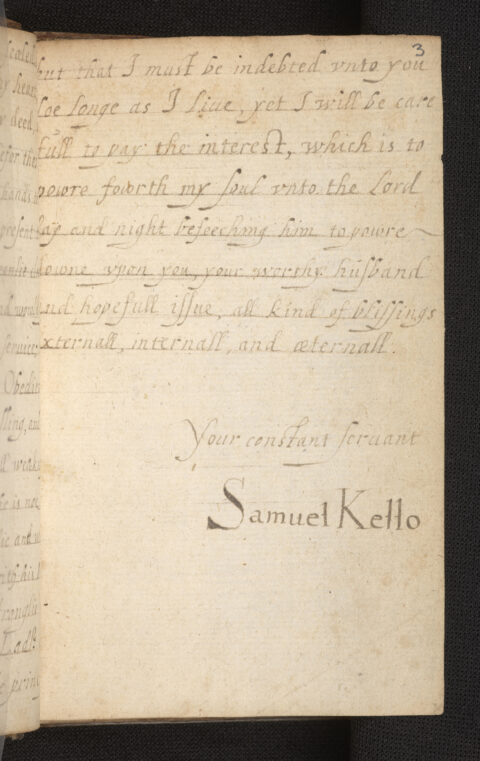 3
but that I must be indebted vnto you
soe longe as I liue, yet I will be care
full to pay the interest, which is to
powre foorth my soul vnto the Lord
day and night beseeching him to powre
downe vpon you, your worthy husband
and hopefull issue, all kind of blissings
externall, internall, and æternall.
Your constant seruant
Samuel Kello